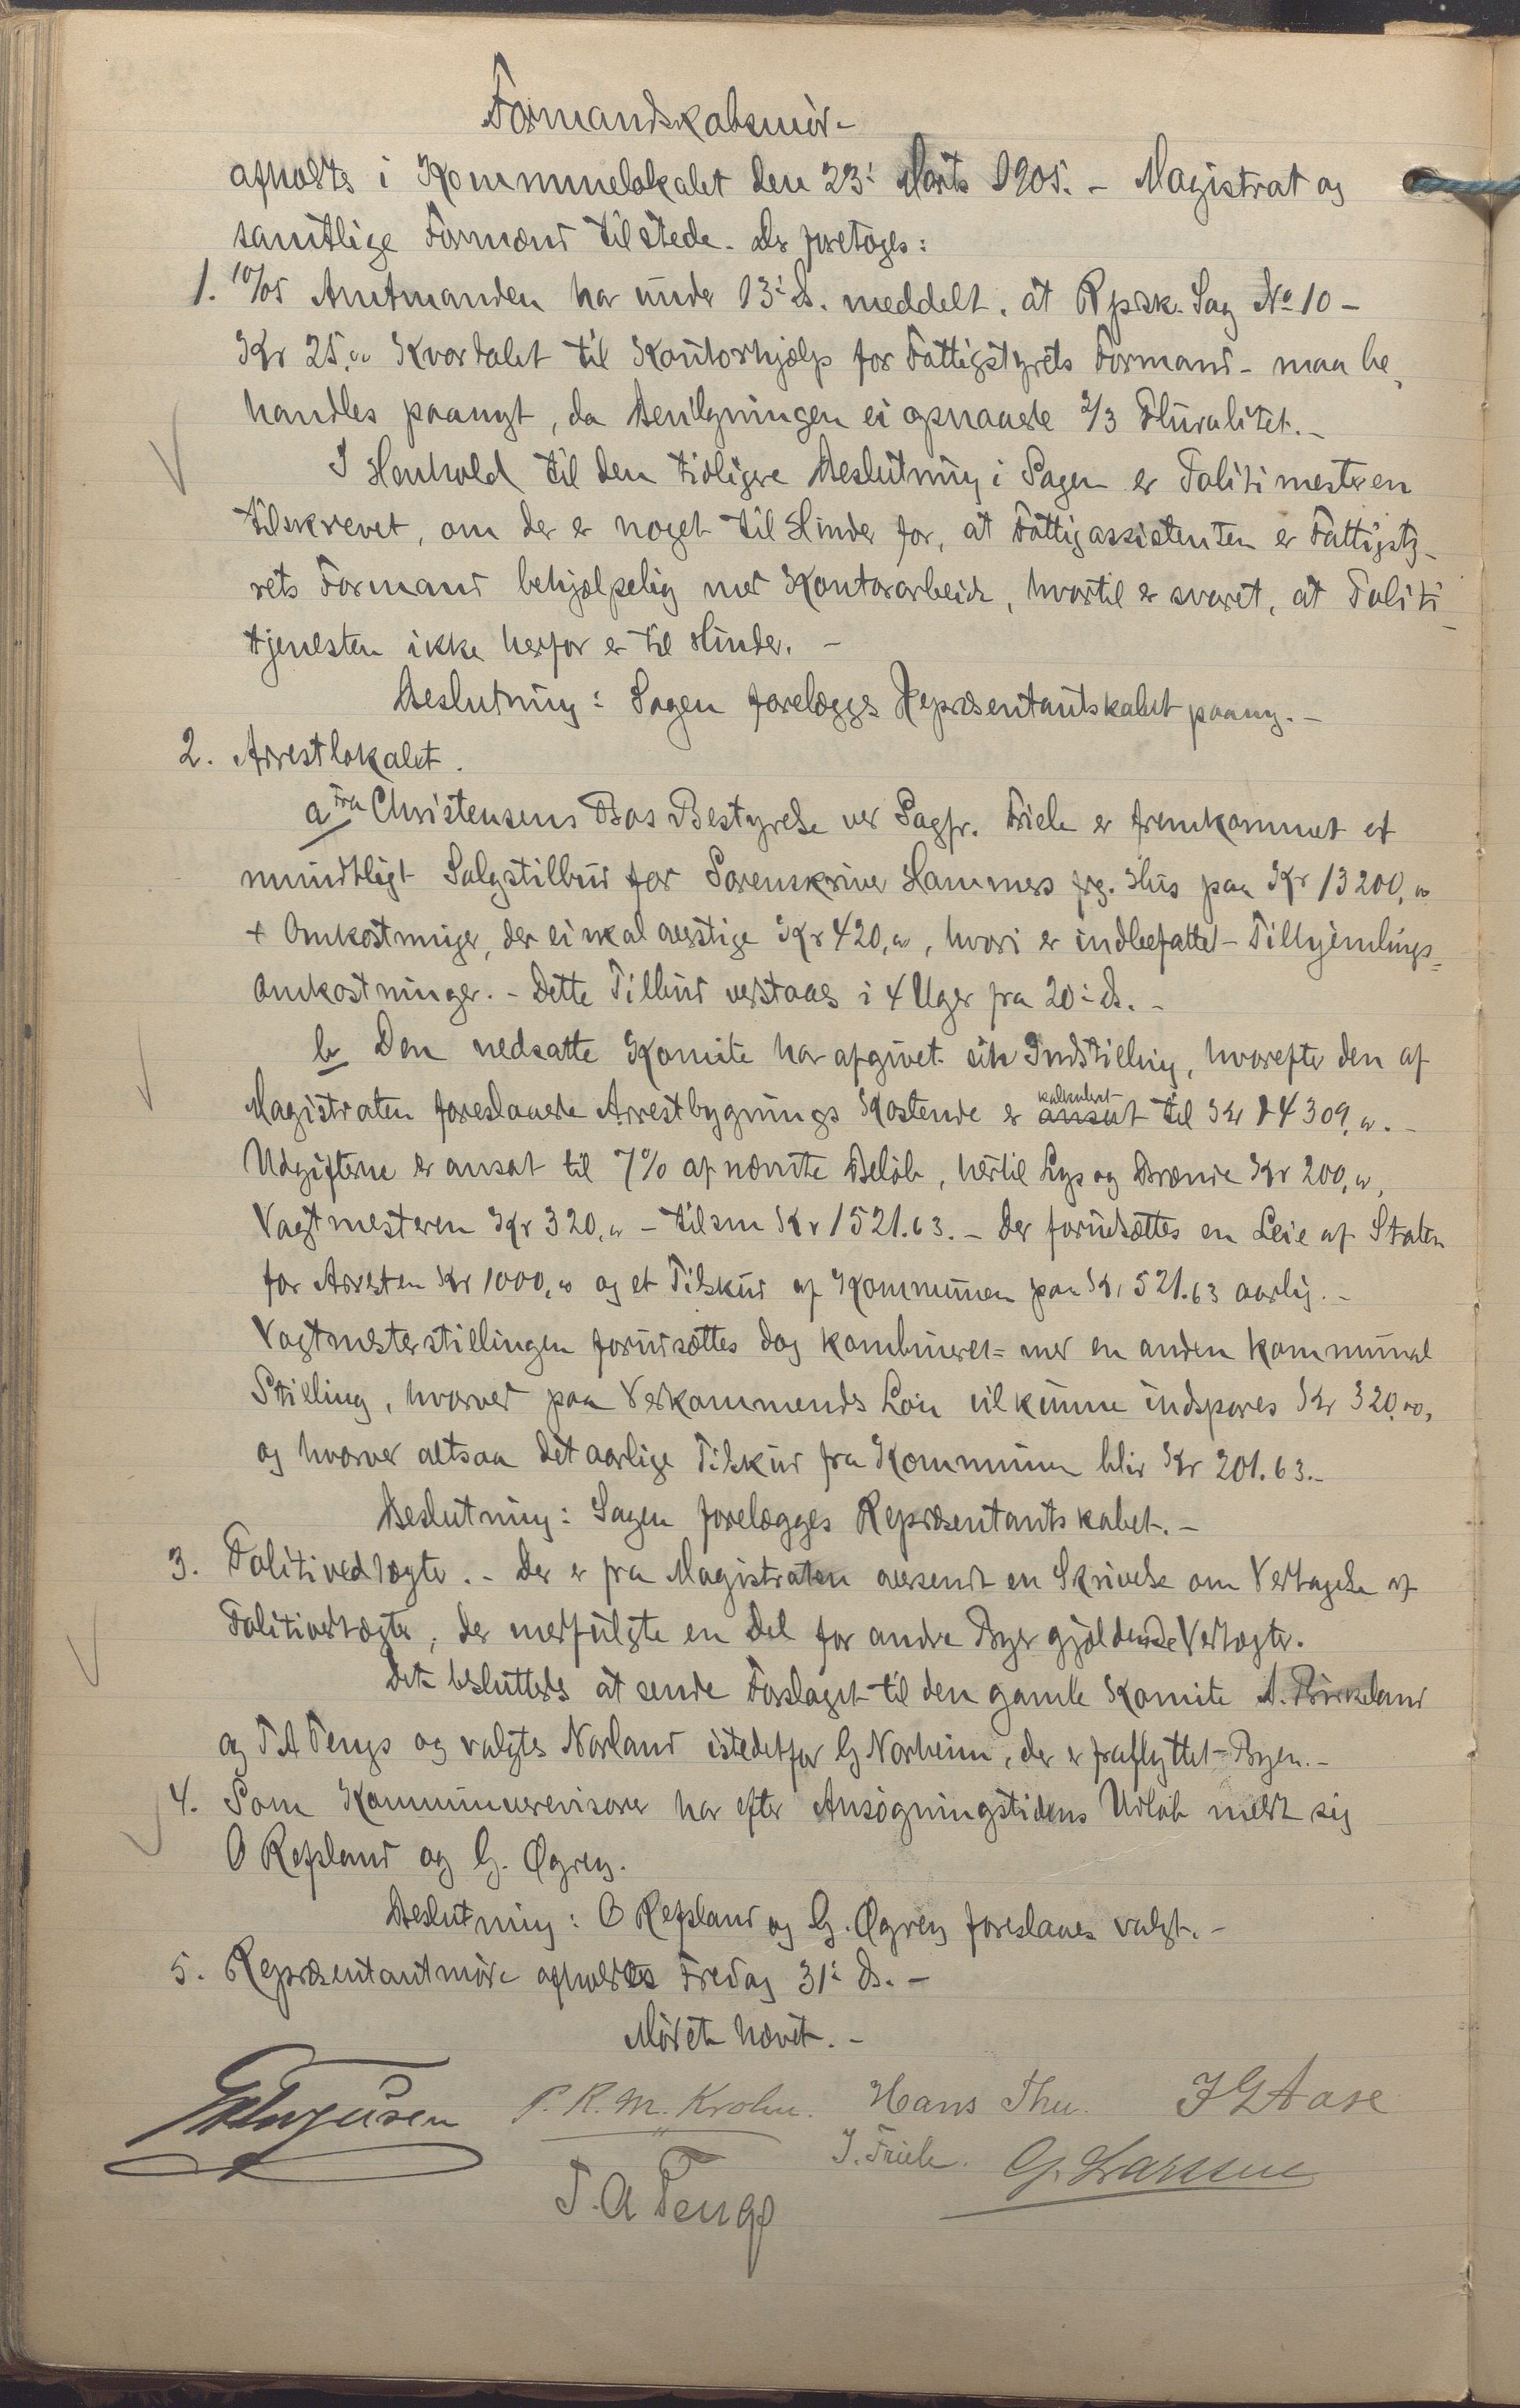 Formandskabsmöde
afholdtes i Kommunelokalet den 23' Marts 1905. - Magistrat og
samtlige Formænd tilstede. Der foretoges:
1. 10/05 Amtmanden har under 13' ds. meddelt, at Rpsk. Sag No 10 -
Kr 25,00 Kvartalet til Kontorhjælp for Fattigstyrets Formand - maa be-
handles paanyt, da Bevilgningen ei opnaaede 2/3 Pluralitet. -
I Henhold til den tidligere Beslutning i Sagen er Politimesteren
tilskrevet, om der er noget til Hinder for, at Fattigassistenten er Fattigsty-
rets Formand behjælpelig med Kontorarbeide, hvortil er svaret, at Politi-
tjenesten ikke herfor er til Hinder. -
Beslutning: Sagen forelægges Repræsentantskabet paany. -
2. Arrestlokalet.
a Fra Christensens Bos Bestyrelse ved Sagfr. Friele er fremkommet et
mundtligt Salgstilbud for Sorenskriver Hammers frg. Hus paa Kr 13200,00
+ Omkostninger, der ei skal overstige Kr 420,00, hvori er indbefattet Tilhjemlings-
omkostninger. - Dette Tilbud vedstaaes i 4 Uger fra 20' ds. -
b Den nedsatte Komite har afgivet sin Indstilling, hvorefter den af
Magistraten foreslaaede Arrestbygnings Kostende er ansat kalkuleret til Kr 14309,00. -
Udgifterne er ansat til 7% af nævnte Beløb, hertil Lys og Brænde Kr 200,00,
Vagtmesteren Kr 320,00 - tilsm Kr 1521.63. - Der forudsættes en Leie af Staten
for Arresten Kr 1000,00 og et Tilskud af Kommunen paa Kr 521.63 aarlig. -
Vagtmesterstillingen forudsættes dog kombineret med en anden kommunal
Stilling, hvorved paa Vedkommendes Løn vil kunne indspares Kr 320,00,
og hvorved altsaa det aarlige Tilskud fra Kommunen blir Kr 201.63. -
Beslutning: Sagen forelægges Repræsentantskabet. -
3. Politivedtægter. - Der er fra Magistraten oversendt en Skrivelse om Vedtagelse af
Politivedtægter, der medfulgte en Del for andre Byer gjældende Vedtægter.
Det besluttedes at sende Forslaget til den gamle Komite A. Birkeland
og T A Tengs og valgtes Norland istedetfor G Norheim, der er fraflyttet Byen. -
4. Som Kommunerevisorer har efter Ansøgningstidens Udløb meldt sig
O Refsland og G. Øgrey.
Beslutning: O Refsland og G. Øgrey foreslaaes valgt. -
5. Repræsentantmøde afholdes Fredag 31' ds. -
Mødet hævet. -
P. R. M. Krohn. Hans Thu. J G Aase
J. Friele. G. Larssen
T. A Tengs